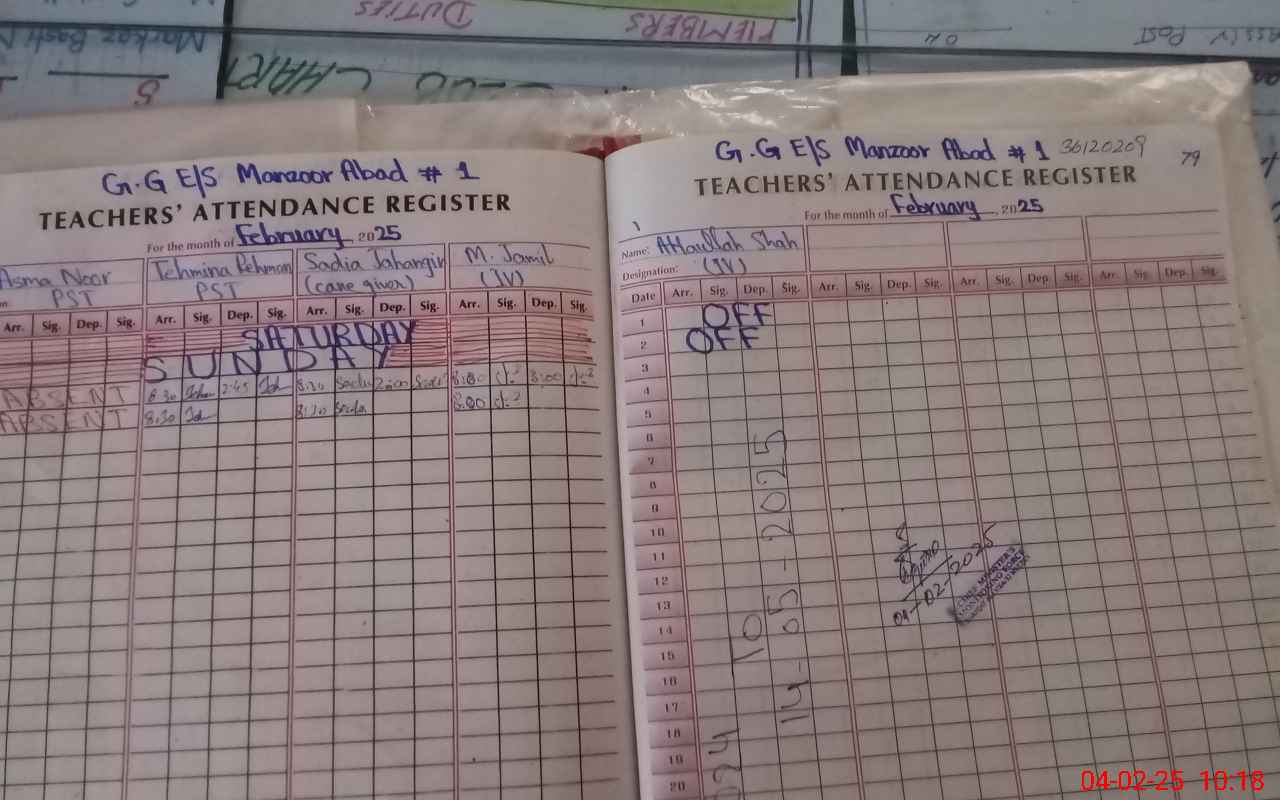 MEMBERS DUTIES
CHART
Markaz Basti
POST
G.G E/S Manzoor Abad # 1
TEACHERS' ATTENDANCE REGISTER
For the month of February, 2025
Asma Noor Tehmina Rehman Sadia Jahangir M. Jamil
PST PST (care giver) (IV)
Arr. Sig. Dep. Sig. Arr. Sig. Dep. Sig. Arr. Sig. Dep. Sig. Arr. Sig. Dep. Sig.
SATURDAY
SUNDAY
ABSENT 8:30 2:45 8:30 2:00 8:00 3:00
ABSENT 8:30 8:30 8:00
G.G E/S Manzoor Abad # 1 36120209 79
TEACHERS' ATTENDANCE REGISTER
For the month of February, 2025
Name: Attaullah Shah
Designation: (IV)
Date Arr. Sig. Dep. Sig. Arr. Sig. Dep. Sig. Arr. Sig. Dep. Sig. Arr. Sig. Dep. Sig.
1 OFF
2 OFF
3
4
5
6
7
8
9
10
11
12
13
14
15
16
17
18
19
20
TO
14-05-2025
04-02-2025
CHIEF MINISTER'S
MONITORING FORCE
04-02-25 10:18